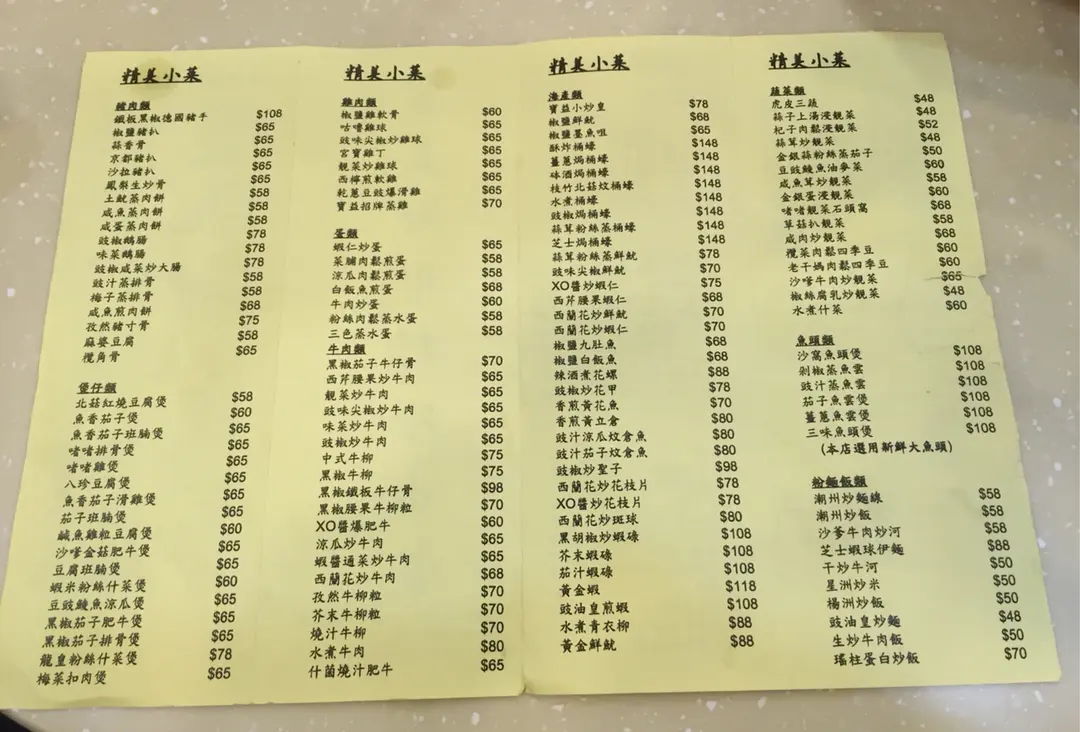 精美小菜
豬肉類
鐵板黑椒德國豬手 $108
椒鹽豬扒 $65
蒜香骨 $65
京都豬扒 $65
沙拉豬扒 $65
鳳梨生炒骨 $65
土魷蒸肉餅 $58
咸魚蒸肉餅 $58
咸蛋蒸肉餅 $58
豉椒鵝腸 $78
味菜鵝腸 $78
豉椒咸菜炒大腸 $78
豉汁蒸排骨 $58
梅子蒸排骨 $58
咸魚煎肉餅 $68
孜然豬寸骨 $75
麻婆豆腐 $58
欖角骨 $65
煲仔類
北菇紅燒豆腐煲 $58
魚香茄子煲 $60
魚香茄子班腩煲 $65
啫啫排骨煲 $65
啫啫雞煲 $65
八珍豆腐煲 $65
魚香茄子滑雞煲 $65
茄子班腩煲 $65
鹹魚雞粒豆腐煲 $60
沙嗲金菇肥牛煲 $65
豆腐班腩煲 $65
蝦米粉絲什菜煲 $60
豆豉鯪魚涼瓜煲 $65
黑椒茄子肥牛煲 $65
黑椒茄子排骨煲 $65
龍皇粉絲什菜煲 $78
梅菜扣肉煲 $65
精美小菜
雞肉類
椒鹽雞軟骨 $60
咕嚕雞球 $65
豉味尖椒炒雞球 $65
宮寶雞丁 $65
靚菜炒雞球 $65
西檸煎軟雞 $65
乾蔥豆豉爆滑雞 $65
寶益招牌蒸雞 $70
蛋類
蝦仁炒蛋 $65
菜脯肉鬆煎蛋 $58
涼瓜肉鬆煎蛋 $58
白飯魚煎蛋 $68
牛肉炒蛋 $60
粉絲肉鬆蒸水蛋 $58
三色蒸水蛋 $58
牛肉類
黑椒茄子牛仔骨 $70
西芹腰果炒牛肉 $65
靚菜炒牛肉 $65
豉味尖椒炒牛肉 $65
味菜炒牛肉 $65
豉椒炒牛肉 $65
中式牛柳 $75
黑椒牛柳 $75
黑椒鐵板牛仔骨 $98
黑椒腰果牛柳粒 $70
XO醬爆肥牛 $60
涼瓜炒牛肉 $65
蝦醬通菜炒牛肉 $65
西蘭花炒牛肉 $68
孜然牛柳粒 $70
芥末牛柳粒 $70
燒汁牛柳 $70
水煮牛肉 $80
什菌燒汁肥牛 $65
精美小菜
海產類
寶益小炒皇 $78
椒鹽鮮魷 $68
椒鹽墨魚咀 $65
酥炸桶蠔 $148
薑蔥焗桶蠔 $148
砵酒焗桶蠔 $148
枝竹北菇炆桶蠔 $148
水煮桶蠔 $148
豉椒焗桶蠔 $148
蒜茸粉絲蒸桶蠔 $148
芝士焗桶蠔 $148
蒜茸粉絲蒸鮮魷 $78
豉味尖椒鮮魷 $70
XO醬炒蝦仁 $75
西芹腰果蝦仁 $68
西蘭花炒鮮魷 $70
西蘭花炒蝦仁 $70
椒鹽九肚魚 $68
椒鹽白飯魚 $68
辣酒煮花螺 $88
豉椒炒花甲 $78
香煎黃花魚 $70
香煎黃立倉 $80
豉汁涼瓜炆倉魚 $80
豉汁茄子炆倉魚 $80
豉椒炒聖子 $98
西蘭花炒花枝片 $78
XO醬炒花枝片 $78
西蘭花炒斑球 $80
黑胡椒炒蝦碌 $108
芥末蝦碌 $108
茄汁蝦碌 $108
黃金蝦 $118
豉油皇煎蝦 $108
水煮青衣柳 $88
黃金鮮魷 $88
精美小菜
蔬菜類
虎皮三蔬 $48
蒜子上湯浸靚菜 $48
杞子肉鬆浸靚菜 $52
蒜茸炒靚菜 $48
金銀蒜粉絲蒸茄子 $50
豆豉鯪魚油麥菜 $60
咸魚茸炒靚菜 $58
金銀蛋浸靚菜 $60
啫啫靚菜石頭窩 $68
草菇扒靚菜 $58
咸肉炒靚菜 $68
欖菜肉鬆四季豆 $60
老干媽肉鬆四季豆 $60
沙嗲牛肉炒靚菜 $65
椒絲腐乳炒靚菜 $48
水煮什菜 $60
魚頭類
沙窩魚頭煲 $108
剁椒蒸魚雲 $108
豉汁蒸魚雲 $108
茄子魚雲煲 $108
薑蔥魚雲煲 $108
三味魚頭煲 $108
(本店選用新鮮大魚頭)
粉麵飯類
潮州炒麵線 $58
潮州炒飯 $58
沙爹牛肉炒河 $58
芝士蝦球伊麵 $88
干炒牛河 $50
星洲炒米 $50
楊洲炒飯 $50
豉油皇炒麵 $48
生炒牛肉飯 $50
瑤柱蛋白炒飯 $70